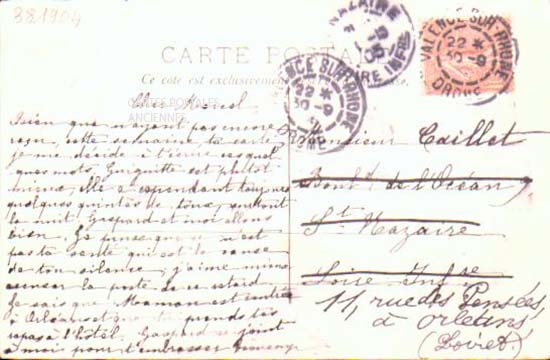 381904
CARTE POSTALE
Ce côté est exclusivement
CARTES POSTALES
ANCIENNES
NAZAIRE
LOIRE INFRE
VALENCE-SUR-RHONE
22 *
30-9
DROME
VALENCE SUR RHONE
22 *
30-9
Cher Marcel
Bien que n'ayant pas encore
reçu cette semaine ta carte,
je me décide à t'écrire
quelques mots. Guiguitte est plutôt
mieux. Elle a cependant toujours
quelques quintes de toux, surtout
la nuit. Gaspard et moi allons
bien. Je pense que ce n'est
pas ta santé qui est la cause
de ton silence, j'aime mieux
accuser la poste de ce retard
Je sais que Maman est rentrée
à Orléans et que tu prends tes
repas à l'hôtel. Gaspard se joint
à moi pour t'embrasser
Monsieur Caillet
Boul d de l'Océan
St Nazaire
Loire Infse
11, rue des Pensées,
à Orléans
(Loiret)